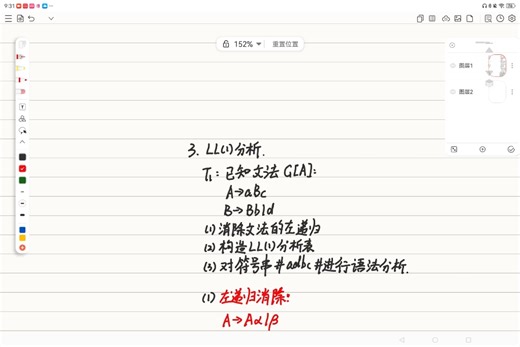 9:31
152% 重置位置
图层1
图层2
3. LL(1)分析.
T₁: 已知文法 G[A]:
A→aBc
B→Bb|d
(1) 消除文法的左递归
(2) 构造LL(1)分析表
(3) 对符号串#adbc#进行语法分析.
(1) 左递归消除:
A→Aα|β